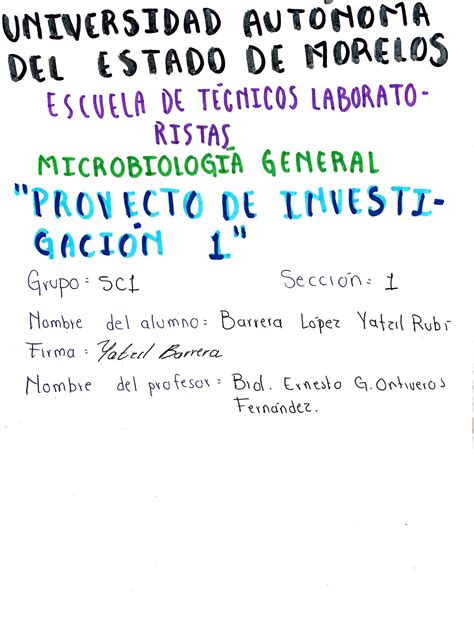 UNIVERSIDAD AUTÓNOMA
DEL ESTADO DE MORELOS
ESCUELA DE TÉCNICOS LABORATO-
RISTAS
MICROBIOLOGÍA GENERAL
"PROYECTO DE INVESTI-
GACIÓN 1"
Grupo: 5C1 Sección: 1
Nombre del alumno: Barrera López Yatzil Rubí
Firma: Yatzil Barrera
Nombre del profesor: Biol. Ernesto G. Ontiveros
Fernández.